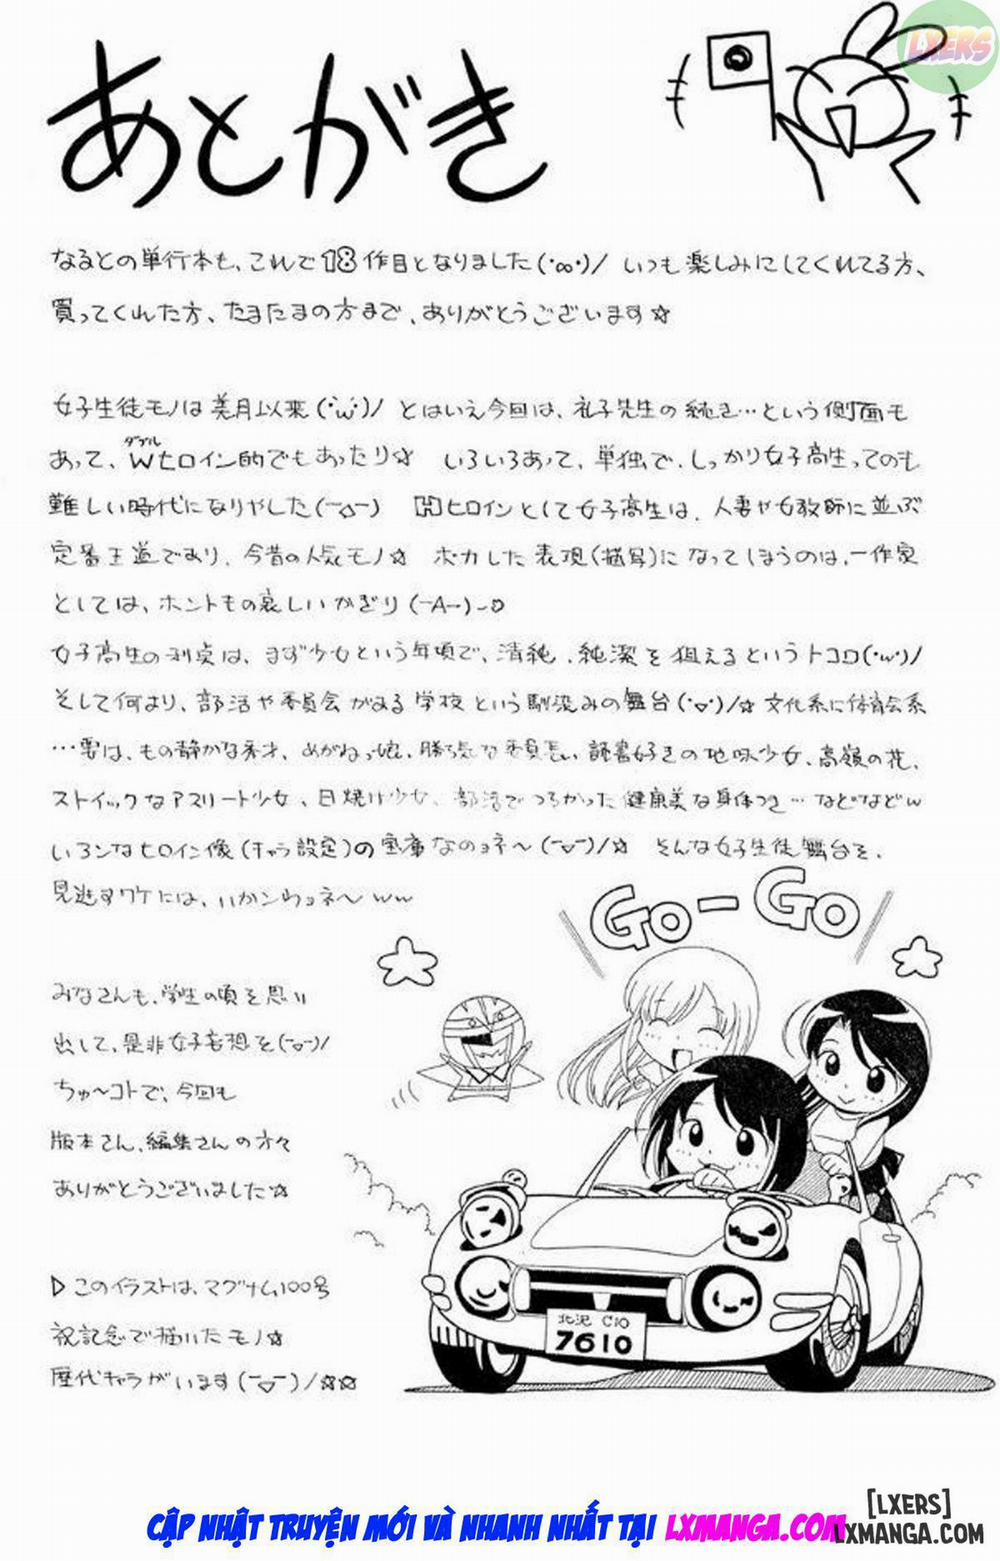 LXERS
あとがき
なるとの単行本も、これで18作目となりました(・∞・)/ いつも楽しみにしてくれてる方、
買ってくれた方、たまたまの方まで、ありがとうございます☆
女子生徒モノは美月以来(・w・)/ とはいえ今回は、礼子先生の続き…という側面も
あって、Wヒロイン的でもあったり☆ いろいろあって、単独で、しっかり女子高生ってのも
ダブル
難しい時代になりやした(ー△ー) Hヒロインとして女子高生は、人妻や女教師に並ぶ
定番王道であり、今昔の人気モノ☆ ボカした表現(描写)になってしまうのは、一作家
としては、ホントもの哀しいかぎり(ーAー)
女子高生の利点は、まず少女という年頃で、清純、純潔を狙えるというトコロ(・w・)/
そして何より、部活や委員会がある学校という馴染みの舞台(・▽・)/☆ 文化系に体育会系
…要は、もの静かな秀才、めがねっ娘、勝ち気な委員長、読書好きの地味少女、高嶺の花、
ストイックなアスリート少女、日焼け少女、部活でつちかった健康美な身体つき…などなどw
いろンなヒロイン像(キャラ設定)の宝庫なのョネ〜(ー▽ー)/☆ そんな女子生徒舞台を、
見逃すワケには、いかンウョネ〜ww
GO-GO
みなさんも、学生の頃を思い
出して、是非女子妄想を(ー▽ー)/
ちゅ〜コトで、今回も
版本さん、編集さんの方々
ありがとうございました☆
▷このイラストは、マグナム100号
祝記念で描いたモノ☆
歴代キャラがいます(ー▽ー)/☆☆
北沢 C10
7610
[LXERS]
CẬP NHẬT TRUYỆN MỚI VÀ NHANH NHẤT TẠI LXMANGA.COM
LXMANGA.COM